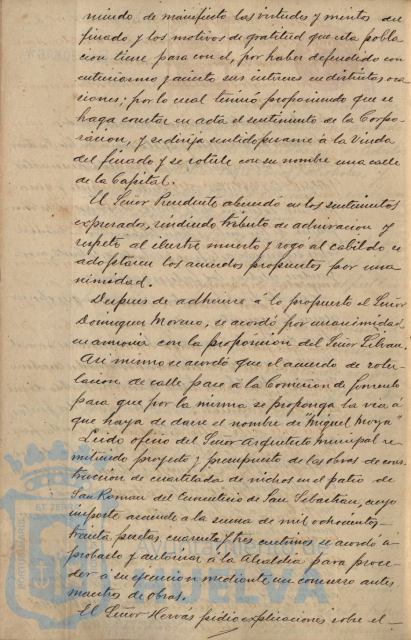 niendo de manifiesto las virtudes y meritos del
finado y los motivos de gratitud que esta pobla
cion tiene para con el, por haber defendido con
entusiasmo y acierto sus intereses en distintas oca
siones; por lo cual terminó proponiendo que se
haga constar en acta el sentimiento de la Corpo-
ración, y se dirija sentido pesame á la Viuda
del finado y se rotule con su nombre una calle
de la Capital.
El Señor Presidente abundó en los sentimientos
expresados, rindiendo tributo de admiracion y
respeto al ilustre muerto y rogó al cabildo se
adoptaran los acuerdos propuestos por una
nimidad.
Despues de adherirse á lo propuesto el Señor
Dominguez Moreno, se acordó por unanimidad,
en armonia con la proposicion del Señor
Asi mismo se acordó que el acuerdo de rotu-
lacion de calle pase á la Comision de Fomento
para que por la misma se proponga la via á
que haya de darse el nombre de "Miguel Moya"
Leido oficio del Señor Arquitecto Municipal re-
mitiendo proyecto y presupuesto de las obras de cons
truccion de cuartelada de nichos en el patio de
San Roman del Cementerio de San Sebastian, cuyo
importe asciende á la suma de mil ochocientas
treinta pesetas, cuarenta y tres centimos se acordó á-
probarlo y autorizar á la Alcaldia para proce-
der á su ejecucion mediante un concurso antes
maestros de obras.
El Señor Hervás pidió explicaciones sobre el -
HUELVA